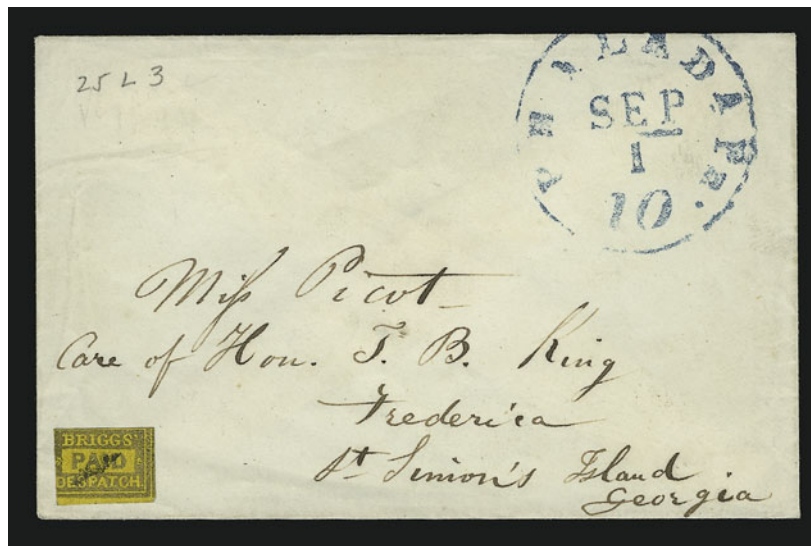 25 L 3
PHILADA Pa.
SEP
1
10
Miss Picot
Care of Hon. T. B. King
Frederica
St Simon's Island
Georgia
BRIGGS'
PAID
DESPATCH.